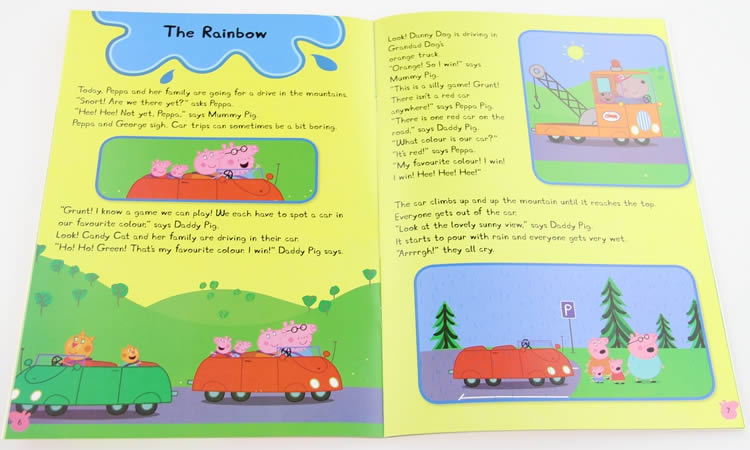 The Rainbow
Today, Peppa and her family are going for a drive in the mountains.
"Snort! Are we there yet?" asks Peppa.
"Hee! Hee! Not yet, Peppa," says Mummy Pig.
Peppa and George sigh. Car trips can sometimes be a bit boring.
"Grunt! I know a game we can play! We each have to spot a car in
our favourite colour," says Daddy Pig.
Look! Candy Cat and her family are driving in their car.
"Ho! Ho! Green! That's my favourite colour. I win!" Daddy Pig says.
6
Look! Danny Dog is driving in
Grandad Dog's
orange truck.
"Orange! So I win!" says
Mummy Pig.
"This is a silly game! Grunt!
There isn't a red car
anywhere!" says Peppa Pig.
"There is one red car on the
road," says Daddy Pig.
"What colour is our car?"
"It's red!" says Peppa.
"My favourite colour! I win!
I win! Hee! Hee! Hee!"
The car climbs up and up the mountain until it reaches the top.
Everyone gets out of the car.
"Look at the lovely sunny view," says Daddy Pig.
It starts to pour with rain and everyone gets very wet.
"Arrrrgh!" they all cry.
P
7